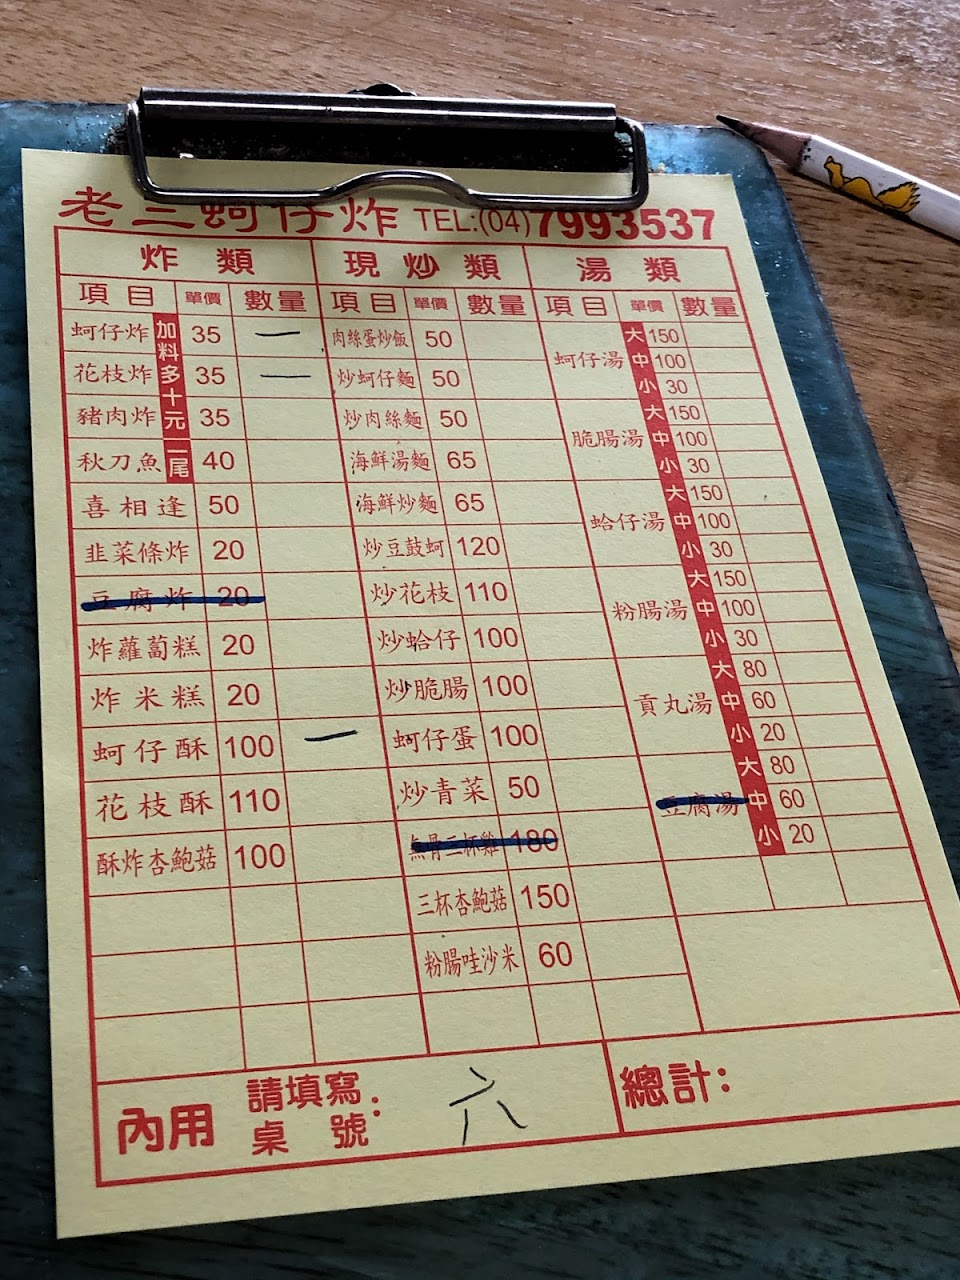 老三蚵仔炸 TEL:(04)7993537
炸類 現炒類 湯類
項目 單價 數量 項目 單價 數量 項目 單價 數量
加料多十元
一尾
蚵仔炸 35 一
花枝炸 35 一
豬肉炸 35
秋刀魚 40
喜相逢 50
韭菜條炸 20
豆腐炸 20
炸蘿蔔糕 20
炸米糕 20
蚵仔酥 100 一
花枝酥 110
酥炸杏鮑菇 100
肉絲蛋炒飯 50
炒蚵仔麵 50
炒肉絲麵 50
海鮮湯麵 65
海鮮炒麵 65
炒豆鼓蚵 120
炒花枝 110
炒蛤仔 100
炒脆腸 100
蚵仔蛋 100
炒青菜 50
無骨三杯雞 180
三杯杏鮑菇 150
粉腸哇沙米 60
蚵仔湯
大 150
中 100
小 30
脆腸湯
大 150
中 100
小 30
蛤仔湯
大 150
中 100
小 30
粉腸湯
大 150
中 100
小 30
貢丸湯
大 80
中 60
小 20
豆腐湯
大 80
中 60
小 20
內用 請填寫桌號: 六
總計: